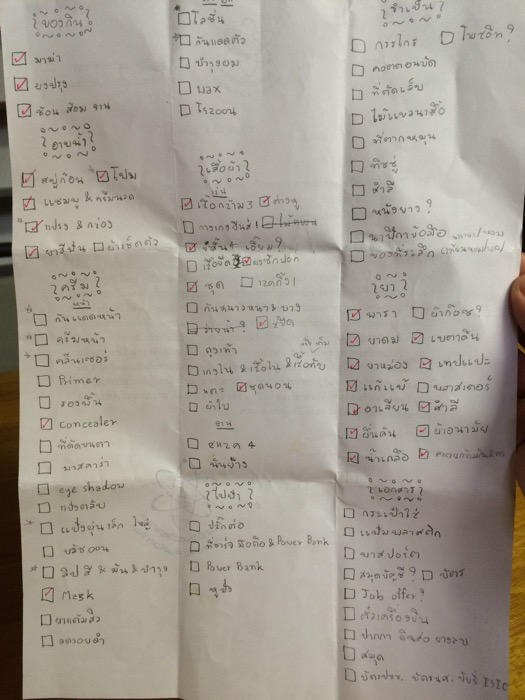 ของกิน
มาม่า
ของปรุง
ช้อน ส้อม จาน
อาบน้ำ
สบู่ก้อน โฟม
แชมพู & ครีมนวด
แปรง & กล่อง
ยาสีฟัน ผ้าเช็ดตัว
ครีม
หน้า
กันแดดหน้า
ครีมหน้า
คลีนเซอร์
Primer
รองพื้น
Concealer
ที่ดัดขนตา
มาสคาร่า
eye shadow
แป้งตลับ
แป้งฝุ่นเล็ก ใหญ่
บรัชออน
ลิป สี & มัน & บำรุง
Mask
ยาแต้มสิว
ลดรอยดำ
โลชั่น
กันแดดตัว
บำรุงผม
wax
โรลออน
เสื้อผ้า
เสื้อกล้าม 3
กางเกงยีนส์ 1
เสื้อยืด
ชุด
กันหนาวหนา & บาง
ว่ายน้ำ?
ถุงเท้า
เกงใน & เสื้อใน & เสื้อทับ
ชุดนอน
ผ้าใบ
แตะ 4
ส้นสูง
ไฟฟ้า
ปลั๊กต่อ
ที่ชาร์จ มือถือ & Power Bank
Power Bank
หูฟัง
จำเป็น
กรรไกร
คอตตอนบัด
ที่ตัดเล็บ
ไม้แขวนเสื้อ
ที่ตากหมุน
ทิชชู่
สำลี
หนังยาง?
นาฬิกาข้อมือ
ยา
พารา ผ้าก๊อซ?
ยาดม เบตาดีน
ยาหม่อง เทปแปะ
แก้แพ้ พลาสเตอร์
อาเจียน สำลี
ผื่นคัน ผ้าอนามัย
น้ำเกลือ
เอกสาร
กระเป๋าใส่
แฟ้มพลาสติก
พาสปอร์ต
สมุดบัญชี? บัตร
Job offer?
ตั๋วเครื่องบิน
ปากกา ดินสอ ยางลบ
สมุด
บัตรปชช. บัตรนศ. ISIC